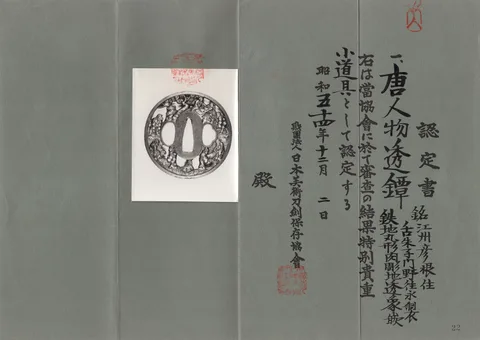 認定書
一、唐人物透鐔
銘 江州彦根住
鉄地丸形肉彫地透象嵌
右は當協會に於て審査の結果特別貴重
小道具として認定する
昭和五十四年十二月 二日
財団法人日本美術刀剣保存協會
殿
22